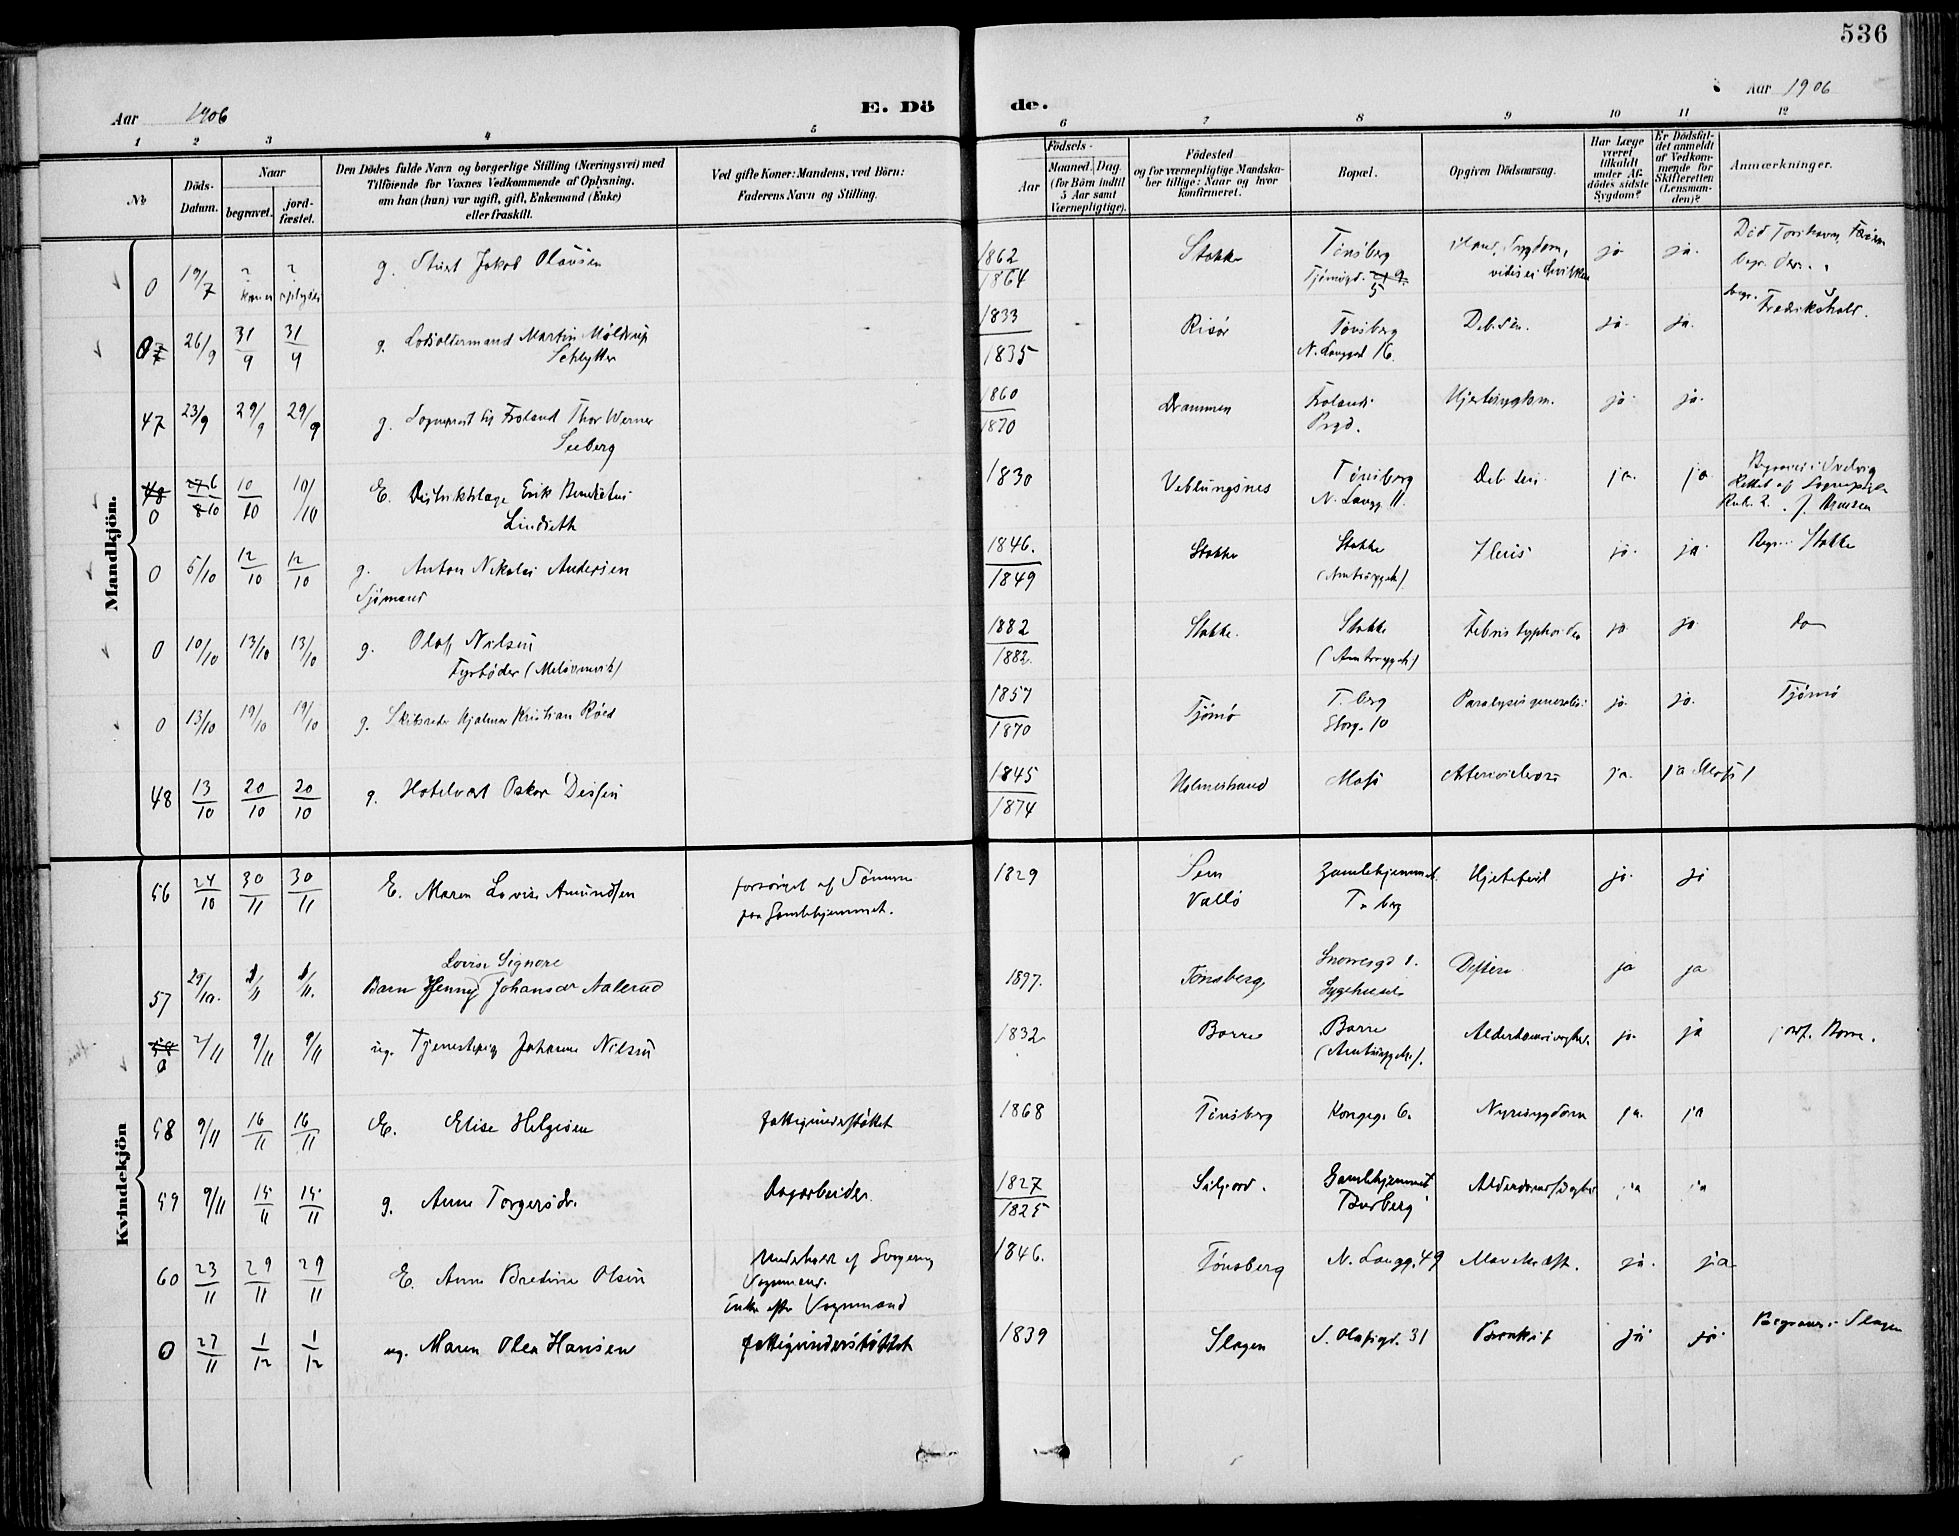 536
Aar 1906
E. Dö
de.
Aar 1906
1 2 3 4 5 6 7 8 9 10 11 12
No
Døds-Datum.
Naar
begravet.
jord-fæstet.
Den Dødes fulde Navn og borgerlige Stilling (Næringsvei) med
Tilföiende for Voxnes Vedkommende af Oplysning,
om han (hun) var ugift, gift, Enkemand (Enke)
eller fraskilt.
Ved gifte Koner: Mandens, ved Börn:
Faderens Navn og Stilling.
Födsels-
Aar
Maaned. Dag.
(for Börn indtil
5 Aar samt
Værnepligtige).
Födested
og for værnepligtige Mandska-
ber tillige: Naar og hvor
konfirmeret.
Bopæl.
Opgiven Dödsaarsag.
Har Læge
været
tilkaldt
under Af-
dödes sidste
Sygdom?
Er Dödsfal-
det anmeldt
af Vedkom-
mende for
Skifteretten
(Lensman-
den)?
Anmærkninger.
Mandkjön.
0 19/7 ? ? g. Stuert Jakob Olausen 1862 1864 Stokke Tönsberg ja ja.
begr. der.
0 26/9 31/9 31/9 g. Lodsoldermand Martin Møldrup
Schlytter 1833 1835 Risör Tönsberg
N. Langgd 16. ja. ja. Fredrikshald.
47 23/9 29/9 29/9 g. Sogneprest til Froland Thor Werner
Seeberg 1860 1870 Drammen Frolands
Prgd. Hjertesygdom. ja ja.
48 0 6/10 10/10 10/10 E. Distriktslæge Erik Benedictus
Lindseth 1830 Veblungsnes Tönsberg
N. Langg. 11. Deb. sen. ja. ja
0 5/10 12/10 12/10 g. Anton Nikolai Andersen
Sjømand 1846. 1849 Stokke Stokke
(Amtssygeh) Ileus ja. ja Begr. i Stokke
0 10/10 13/10 13/10 g. Olaf Nilsen
Fyrbøder 1882 1882. Stokke. Stokke
(Amtssygeh) Febris typhoidea ja ja do
0 13/10 19/10 19/10 g. Skibsreder Hjalmar Kristian Røed 1857 1870 Tjömö T. berg
Storg. 10 Paralysis generalis ja. ja. Tjömö
48 13/10 20/10 20/10 g. Hotelvært Oskar Dessen 1845 1874 Holmestrand Moss ja. ja Moss
Kvindekjön
56 24/10 30/11 30/11 E. Maren Lovise Amundsen forsörget af Sönnen
paa Gamlehjemmet. 1829 Sem
Vallö Gamlehjemmet
T. berg Hjertefeil ja. ja
Lovise Signora
57 29/10. 1/11 1/11. Barn Henny Johansdr Aalerud 1897. Tönsberg Snorresgd 1.
Sygehuset Difteri ja ja
0 2/11 9/11 9/11 ug. Tjenestepige Johanne Nilsen 1832 Borre Borre
(Amtssygeh.). ja. ja Borre.
58 9/11 16/11 16/11 E. Elise Helgesen fattigunderstøttet 1868 Tönsberg Kongeg. 6. Nyresygdom ja. ja
59 9/11 15/11 15/11 g. Anne Torgersdr. Dagarbeider 1827 1825 Siljord. Gamlehjemmet
Tönsberg ja ja
60 23/11 29/11 29/11 E. Anne Bredine Olsen Underholdt af Svigersøn
Vognmand.
Enke efter Vognmand 1846. Tönsberg N. Langg. 49 Mavekræft. ja. ja
0 27/11 1/12 1/12 ug. Maren Olea Hansen fattigunderstøttet 1839 Slagen S. Olafsgd. 31 Bronkit ja ja Begraves i Slagen